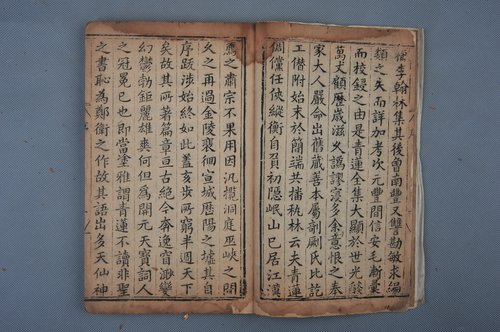 李翰林集其後曾南豐又讐勘敏求編
類之失而詳加考次元豐間信安毛漸
而校鋟之由是青蓮全集大顯於世光燄
萬丈顧歷歲滋乆譌謬寖多余意恨之奉
家大人嚴命出舊蔵善本屬剞劂氏比訖
工僣附始末於簡端共播秇林云夫青蓮
倜儻任俠縱衡自負初隱岷山已居江漢
薦之肅宗不果用因汎攬洞庭巫峽之間
乆之再過金陵裵徊宣城歷陽之墟其自
序跡涉始終如此蓋亥步所窮半週天下
矣故其所著篇章亘古絕今奔逸窅渺變
幻鬱勃鉅麗雄爽何但為開元天寶詞人
之冠冕已也即當塗雅謂青蓮不讀非聖
之書恥為鄭衛之作故其語出多天仙神